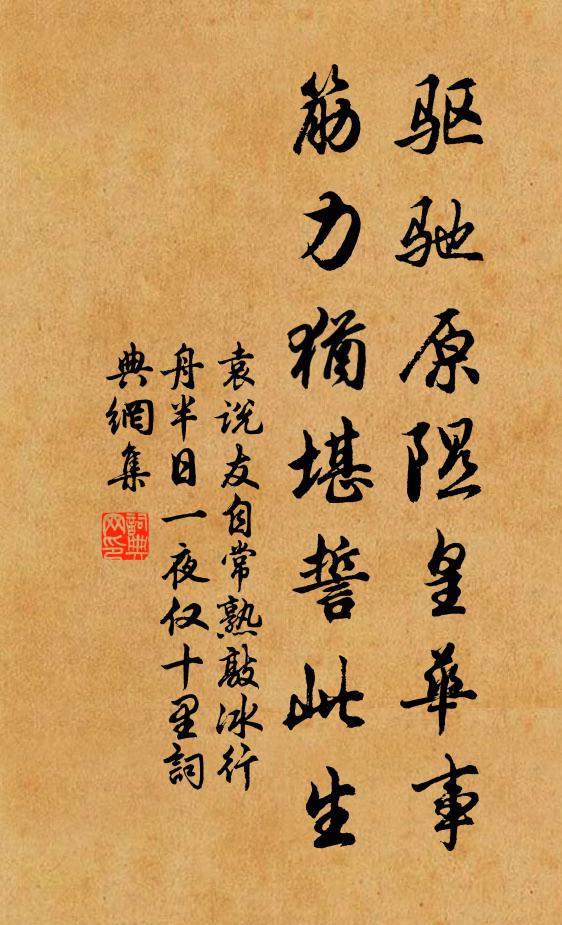 驱驰原隰皇华事
筋力犹堪誓此生
袁说友自常熟敲冰行
舟半日一夜仅十里詞
典網集
詞典
网印